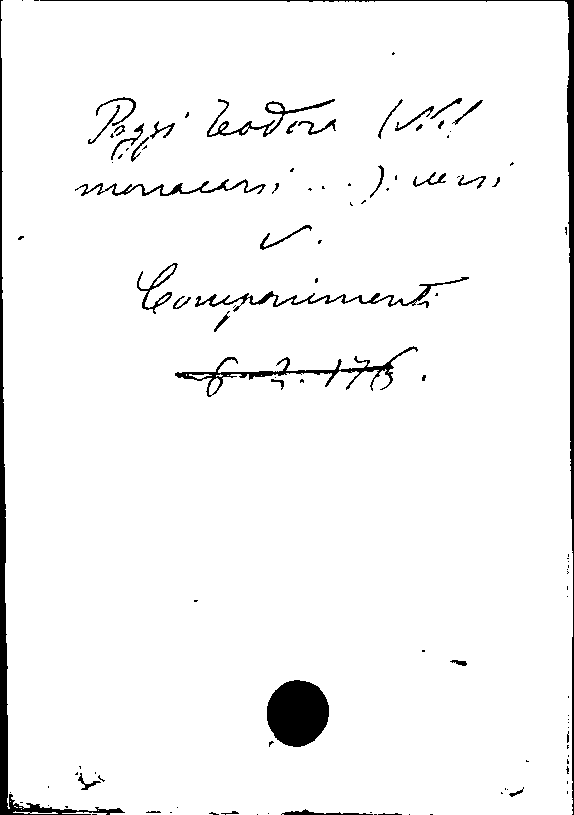 Poggi Teodora (Nel
monacarsi ... ): versi
v.
Componimenti
6. 2. 176.